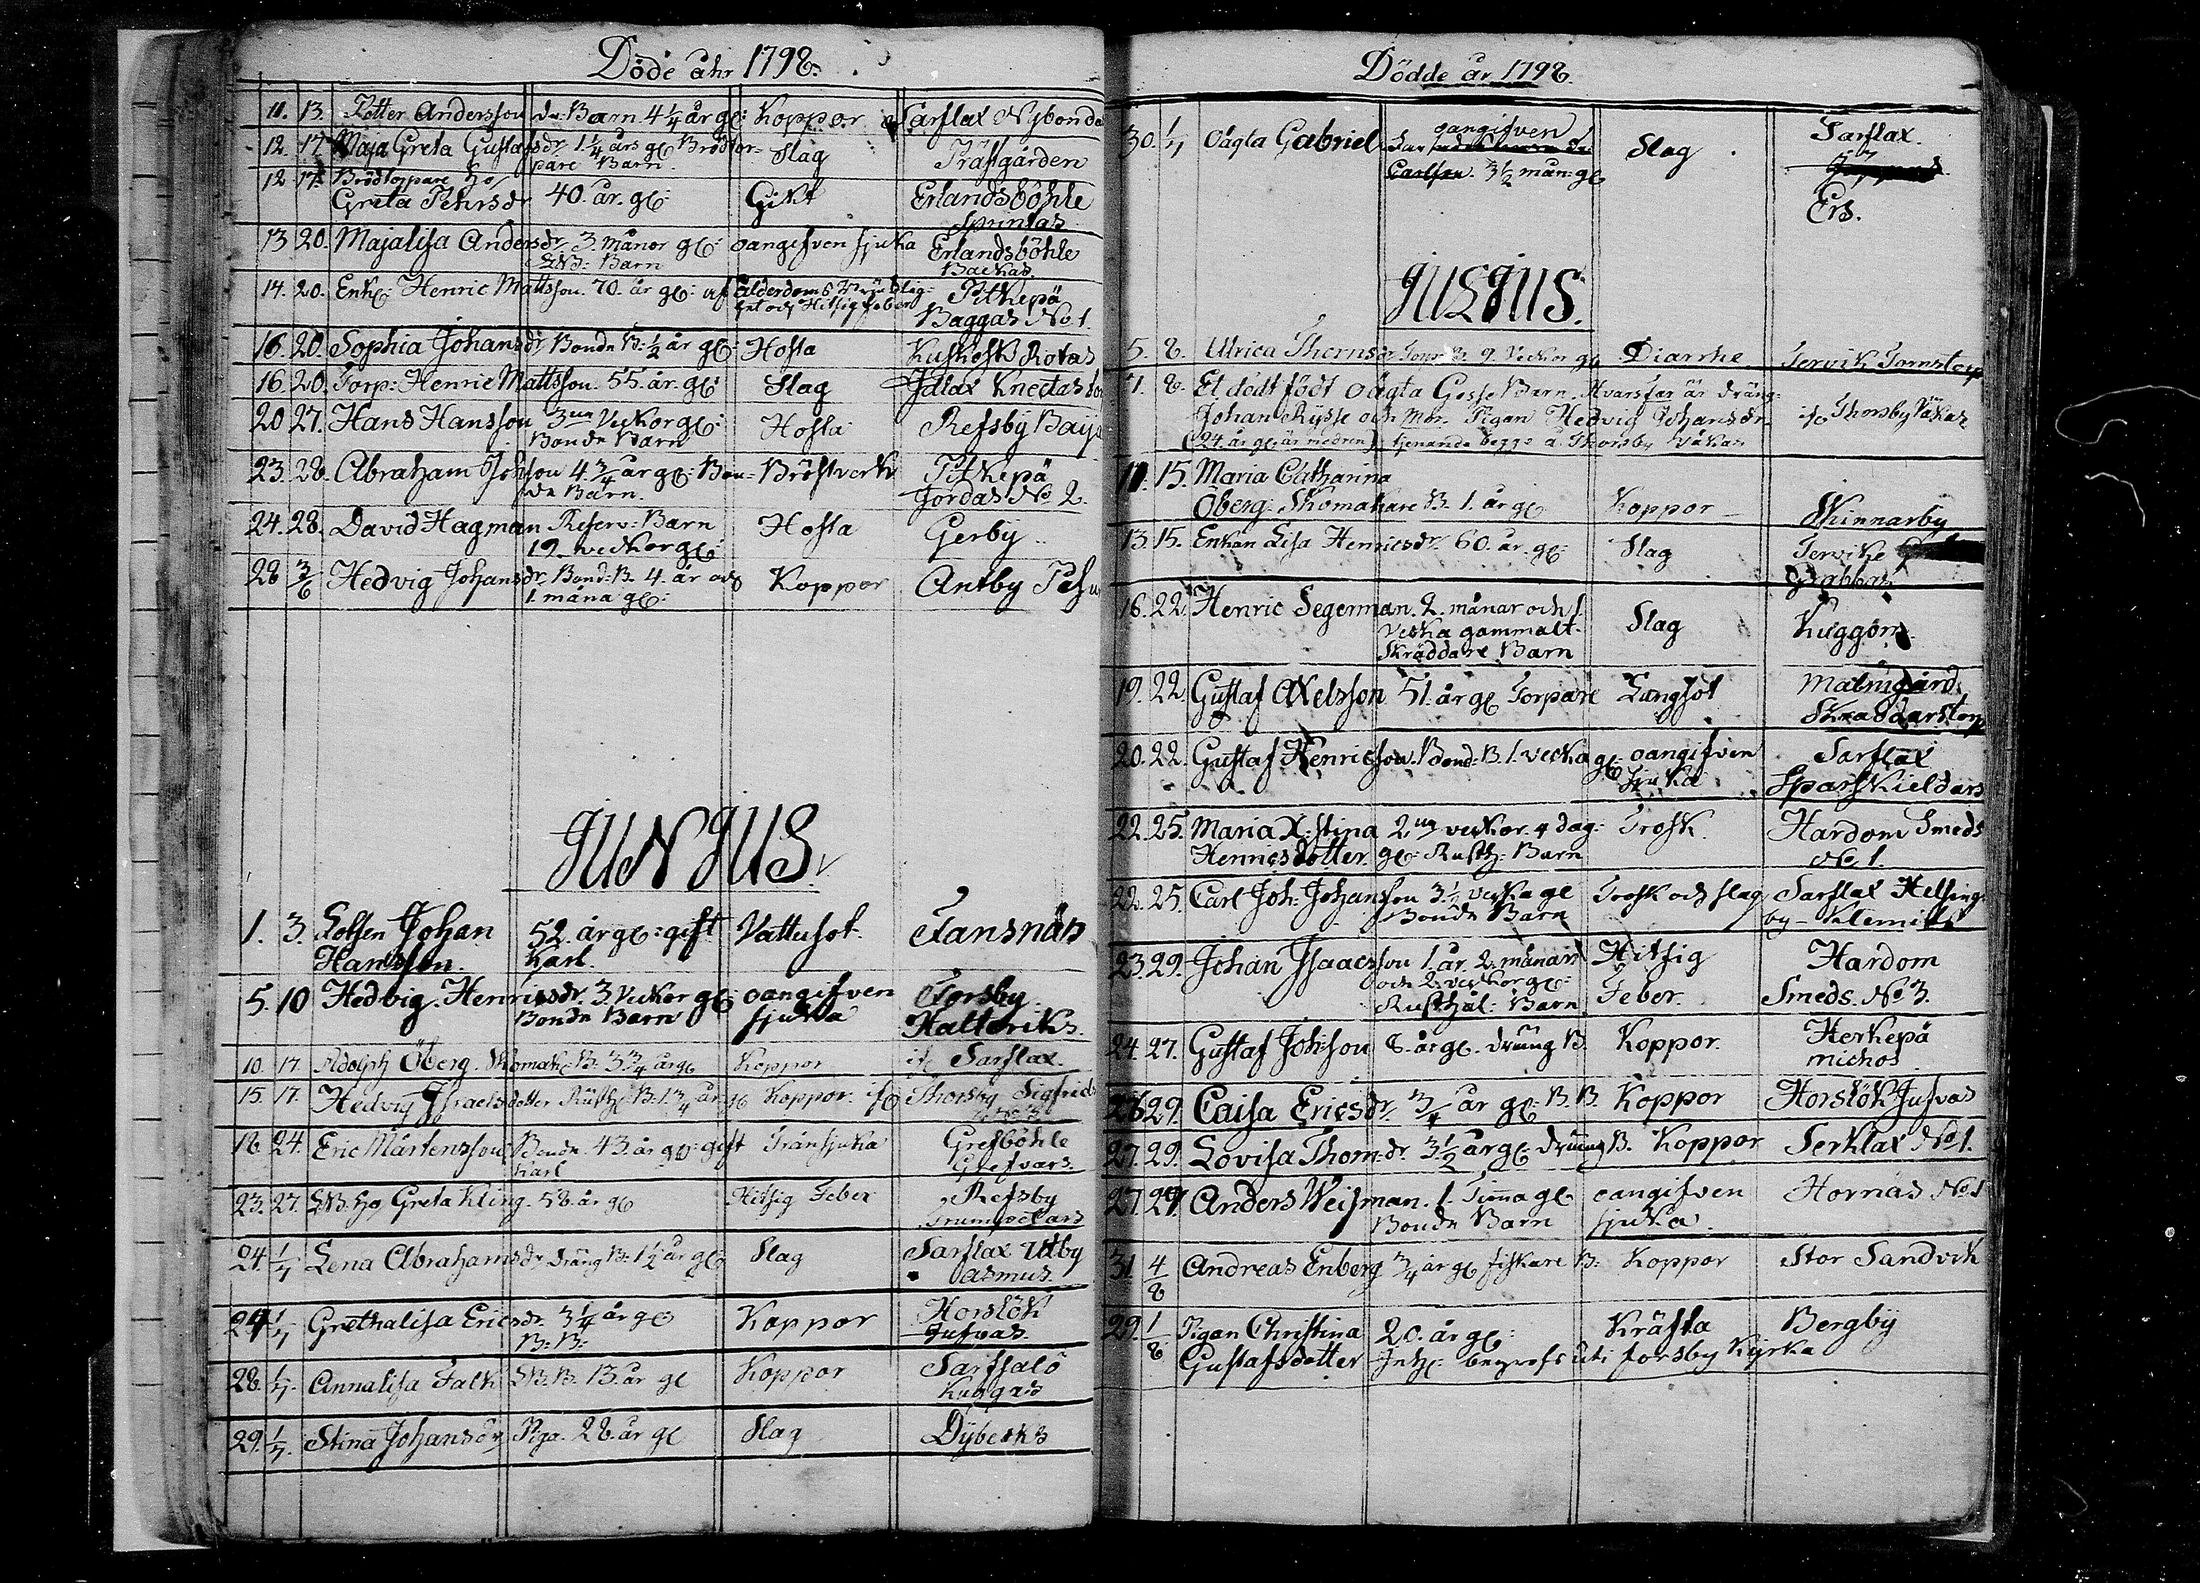 Döde åhr 1798.
11. 13. Petter Andersson Barn 4 1/4 år gl: Koppor Sarflax Nybonda
12. 17. Maja Greta Gustafsdr. 1 1/4 års gl Slag Prästgården
pare Barn
12 17. Greta Pehrsdr 40. år. gl: Gikt Erlandsböhle
13 20. Majalisa Andersdr 3 månor gl: oangifven sjuka Erlandsböhle
Barn Backas.
14. 20. Enkl: Henric Mattsson. 70. år gl: af Ålderdoms
och Hitsig feber Pitkepä
Baggas No 1.
16. 20. Sophia Johansdr Bonde B: 1/2 år gl: Hosta Kuskosk Rotas
16. 20. Torp: Henric Mattsson. 55. år. gl: Slag Idlax
20 27. Hans Hansson 3ne Veckor gl: Hosta Refsby
Bonde Barn
23. 28. Abraham Johsson 4 3/4 år gl: Bon= Bröstverk Pitkepä
de Barn. Jordas No 2.
24. 28. David Hagman Reserv: Barn Hosta Gerby
19. veckor gl:
28 3/6 Hedvig Johansdr. Bond: B. 4. år och Koppor Antby
1. måna gl:
JUNIUS.
1. 3. Johan 52. år gl: gift Vattusot. Tansnäs
Hansson. Karl.
5. 10 Hedvig. Henricsdr. 3. Veckor gl: oangifven Forsby
Bonde Barn sjuka
10. 17. Adolph Öberg. Skomak: B: 3 3/4 år gl Koppor Sarflax.
15. 17. Hedvig Israelsdotter Rusth: B: 1 3/4 år gl Koppor. Thorsby Sigfrids
18. 24. Eric Mårtensson Bonde. 43. år gl: gift Trånsjuka Gresböhle
Karl Grefvars.
23. 27. Greta Kling. 58. år gl Hitsig Feber Refsby
24. 1/7 Lena Abrahamsdr Dräng B: 1 1/2 år gl: Slag Sarflax Utby
Asmus.
24 1/7 Grethalisa Ericsdr. 3 1/4 år gl Koppor Horslök
B: B: Jufvas
28. 1/7. Annalisa Falk 13. år gl Koppor Sarfsalö
29. 1/7. Stina Johansdr, Piga. 28. år gl Slag Dybecks
Dödde år 1798.
30. 1/7 Oägta Gabriel oangifven Slag Sarflax.
3 1/2 mån: gl
Ers.
JULJUS.
5. 8. Ulrica Thomsdr Torp: B. 9. Veckor gl Diarrhe Tervik
7. 8. Et dödt födt oägta Gosse Barn. Hvarsfar är dräng:
Johan Rysse och Mor. Pigan Hedvig Johansdr. Thorsby Våkas
(24. år gl: är modren) tjenande begge å Thorsby Våkas
11. 15. Maria Catharina
Öberg: Skomakare B. 1. år gl Koppor Skinnarby
13. 15. Enkan Lisa Henricsdr. 60. år. gl: Slag Tervike
Grabbas
16. 22. Henric Segerman. 2. månar och 1. Slag Kuggom.
Vecka gammalt.
Skräddare Barn
19. 22. Gustaf Axelsson 51. år gl Torpare Lungsot Malmgård
Skraddarstorp
20. 22. Gustaf Henricsson. Bond: B. 1. vecka gl: oangifven Sarflax
Sjuka Sparfkieldars
22. 25. Maria X:stina 2ne veckor. 4 dag: Trosk Hardom Smeds
Henricsdotter. gl: Rusth: Barn No 1.
22. 25. Carl Joh: Johansson 3 1/2 vecka gl Trosk och slag Sarflax Helsing=
Bonde Barn by Klemets
23. 29. Johan Isaacsson 1. år. 2. månar Hitsig Hardom
och 2. veckor gl: Feber. Smeds. No 3.
Rusthål: Barn
24. 27. Gustaf Johsson 8. år gl. Dräng B. Koppor. Herkepä
michos
26 29. Caisa Ericsdr. 3/4 år gl: B. B. Koppor Horslök Jufvas
27. 29. Lovisa Thom:dr. 3 1/2 år gl: Dräng B. Koppor Serklax No 1.
27. 29 Anders Weisman. 1. Timma gl oangifven Hornäs No 1
Bonde Barn sjuka.
31. 4/8 Andreas Enberg 3/4 år gl fiskare B: Koppor Stor Sandvik
29. 1/8 Pigan Christina 20. år gl: Kräfta Bergby
Gustafsdotter begrofs uti Forsby Kyrka